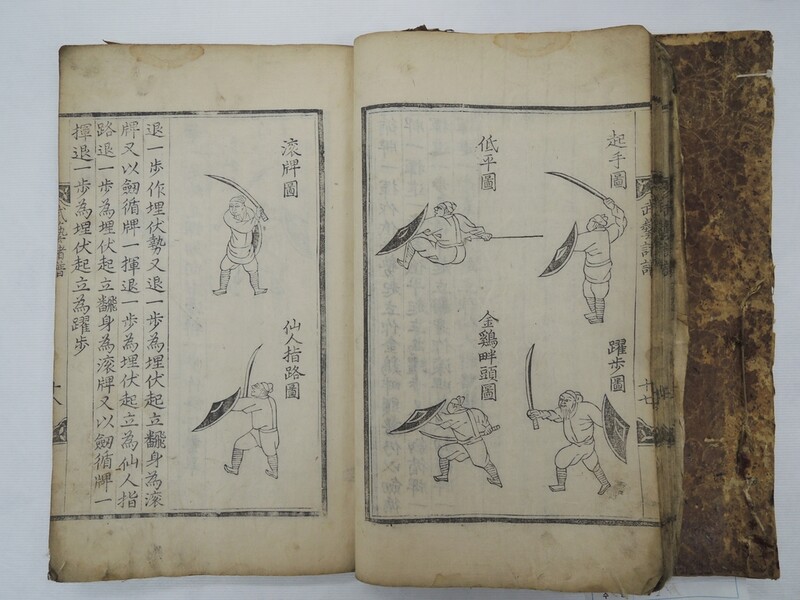 武藝諸譜
十七
起手圖
躍歩圖
低平圖
金鷄畔頭圖
滚牌圖
仙人指路圖
退一歩作埋伏勢又退一歩為埋伏起立飜身為滚
牌又以劔循牌一揮退一歩為埋伏起立為仙人指
路退一歩為埋伏起立飜身為滚牌又以劔循牌一
揮退一歩為埋伏起立為躍歩
武藝諸譜
十八